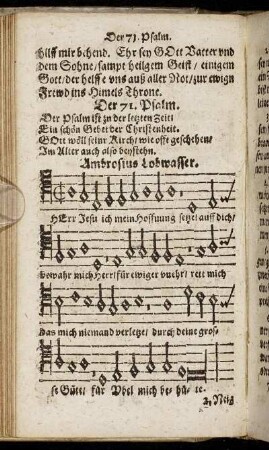 Der 71. Psalm.
hilff mir behend. Ehr sey GOtt Vatter vnd
dem Sohne/ sampt heilgem Geist/ einigem
Gott/ der helffe vns auß aller Not/ zur ewign
Frewd ins Himels Throne.
Der 71. Psalm.
Der Psalm ist zu der letzten Zeit/
Ein schön Gebet der Christenheit.
GOtt wöll seinr Kirch/ wie offt geschehen/
Im Alter auch also beystehn.
Ambrosius Lobwasser.
HErr Jesu ich mein Hoffnung setzet auff dich/
bewahr mich Herr/ für ewiger vnehr/ rett mich
Das mich niemand verletze/ durch deine gros-
se Güte/ für Vbel mich be- hü- te.
2. Neig